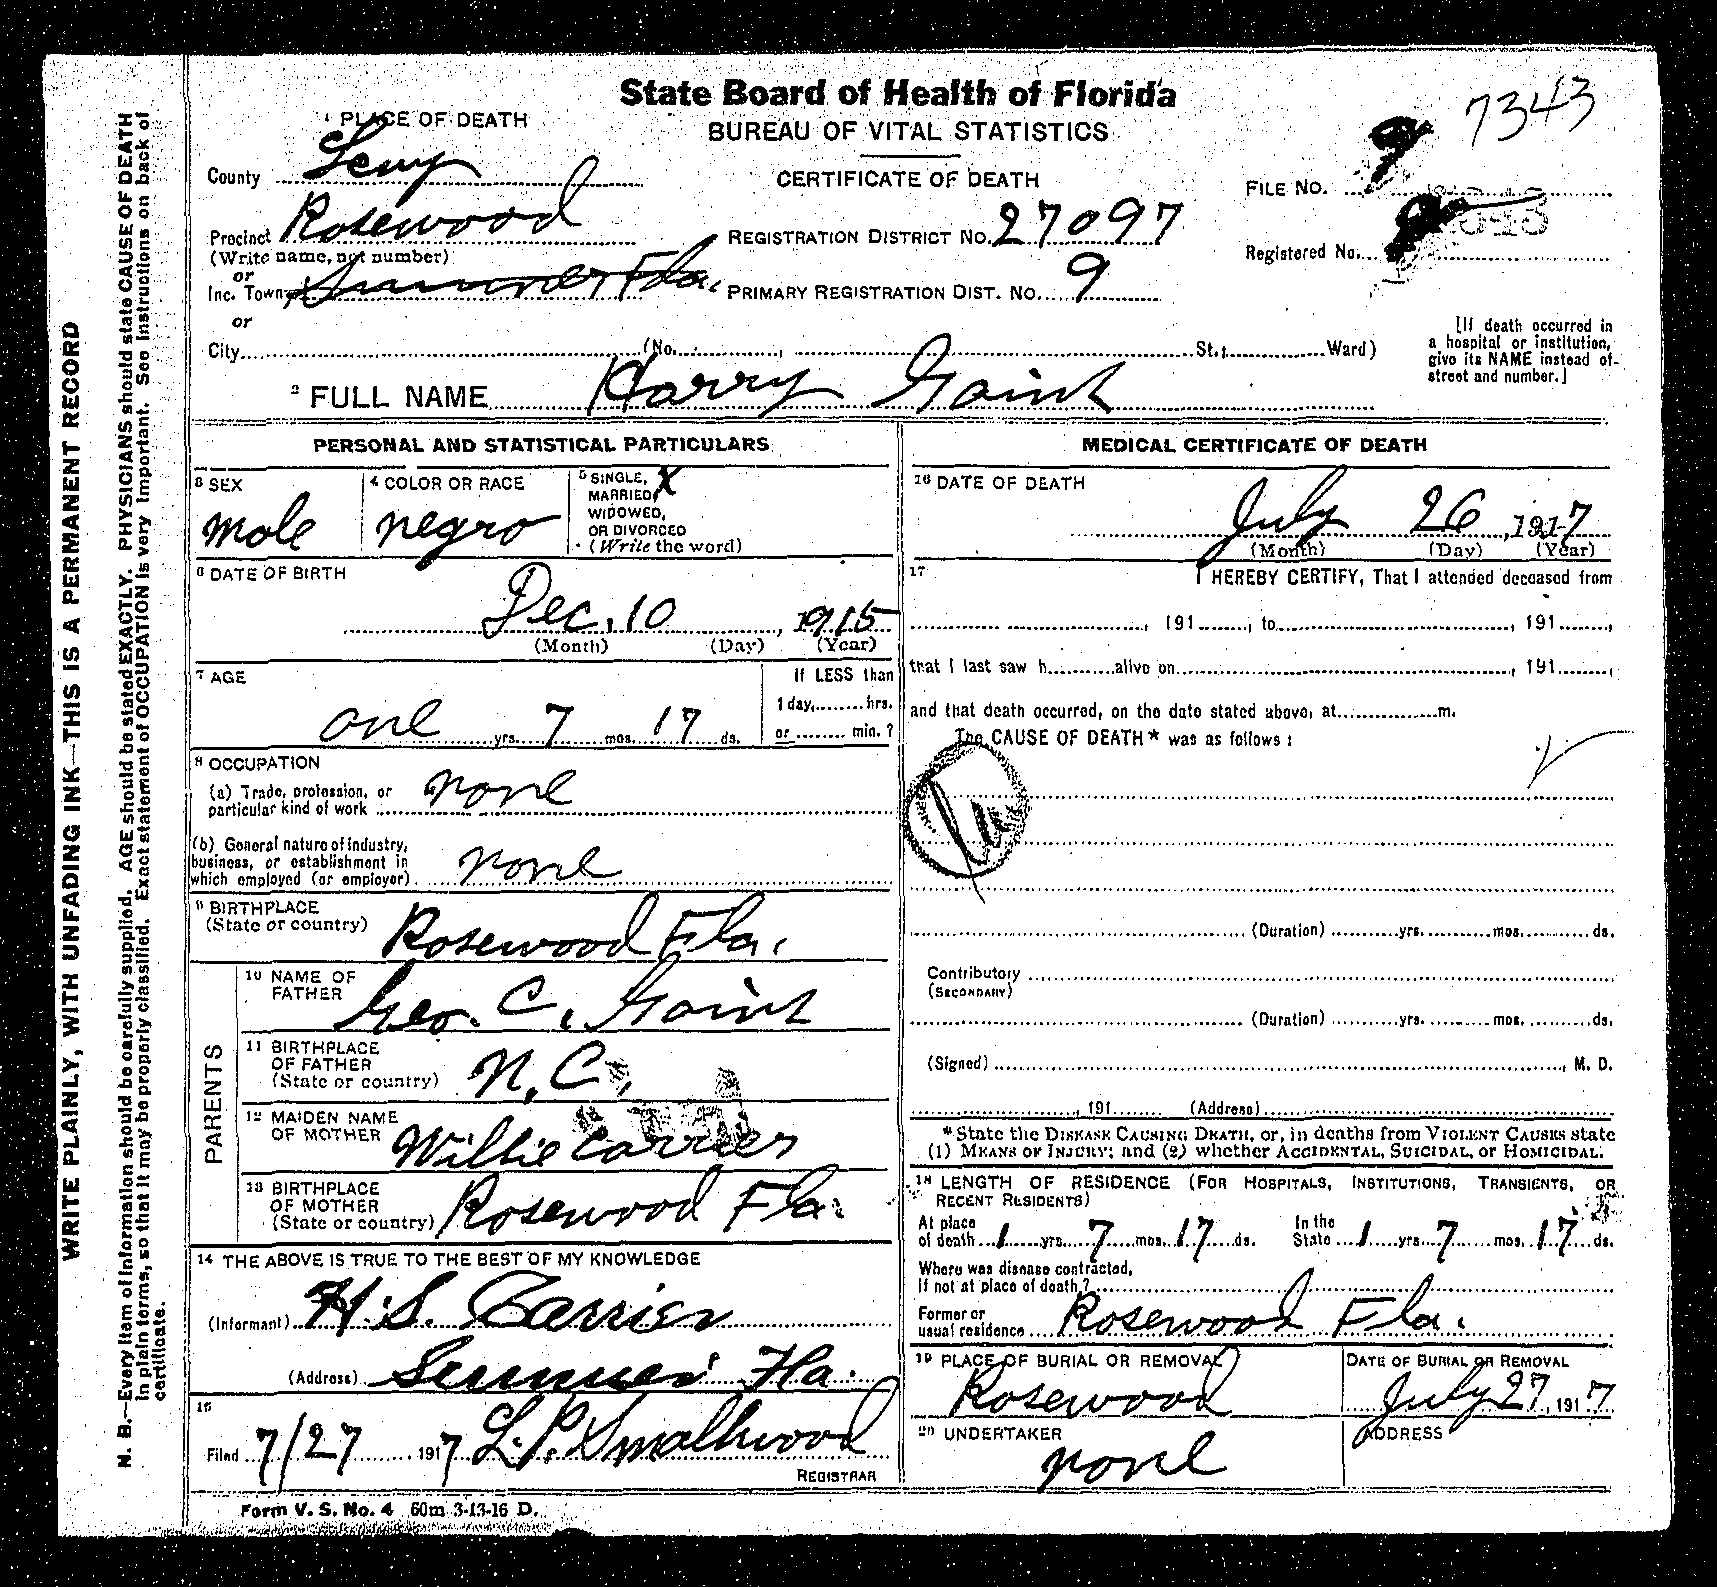 State Board of Health of Florida
BUREAU OF VITAL STATISTICS
CERTIFICATE OF DEATH
7343
1 PLACE OF DEATH
County Levy
Precinct Rosewood
(Write name, not number)
or
Inc. Town Fla.
or
City (No. , St.; Ward)
REGISTRATION DISTRICT No. 27097
PRIMARY REGISTRATION DIST. NO. 9
FILE NO.
Registered No.
[If death occurred in
a hospital or institution,
give its NAME instead of
street and number.]
2 FULL NAME Harry Goins
PERSONAL AND STATISTICAL PARTICULARS
3 SEX
Male
4 COLOR OR RACE
negro
5 SINGLE, X
MARRIED,
WIDOWED,
OR DIVORCED
(Write the word)
6 DATE OF BIRTH
Dec. 10, 1915
(Month) (Day) (Year)
7 AGE
one yrs. 7 mos. 17 ds.
If LESS than
1 day, hrs.
or min. ?
8 OCCUPATION
(a) Trade, profession, or
particular kind of work none
(b) General nature of industry,
business, or establishment in
which employed (or employer) none
9 BIRTHPLACE
(State or country) Rosewood Fla.
PARENTS
10 NAME OF
FATHER Geo. C. Goins
11 BIRTHPLACE
OF FATHER
(State or country) N.C.
12 MAIDEN NAME
OF MOTHER Willie Carrier
13 BIRTHPLACE
OF MOTHER
(State or country) Rosewood Fla.
14 THE ABOVE IS TRUE TO THE BEST OF MY KNOWLEDGE
(Informant) H.S. Carrier
(Address) Sumner Fla.
15
Filed 7/27 1917 L.P. Smallwood
REGISTRAR
MEDICAL CERTIFICATE OF DEATH
16 DATE OF DEATH
July 26, 1917
(Month) (Day) (Year)
17 I HEREBY CERTIFY, That I attended deceased from
, 191 , to , 191 ,
that I last saw h alive on , 191 ,
and that death occurred, on the date stated above, at m.
The CAUSE OF DEATH* was as follows :
(Duration) yrs. mos. ds.
Contributory
(SECONDARY)
(Duration) yrs. mos. ds.
(Signed) , M. D.
, 191 (Address)
*State the DISEASE CAUSING DEATH, or, in deaths from VIOLENT CAUSES state
(1) MEANS OF INJURY; and (2) whether ACCIDENTAL, SUICIDAL, or HOMICIDAL.
18 LENGTH OF RESIDENCE (FOR HOSPITALS, INSTITUTIONS, TRANSIENTS, OR
RECENT RESIDENTS)
At place
of death 1 yrs. 7 mos. 17 ds.
In the
State 1 yrs. 7 mos. 17 ds.
Where was disease contracted,
If not at place of death?
Former or
usual residence Rosewood Fla.
19 PLACE OF BURIAL OR REMOVAL
Rosewood
DATE OF BURIAL OR REMOVAL
July 27, 1917
20 UNDERTAKER
none
ADDRESS
Form V. S. No. 4 60m 3-13-16 D.
WRITE PLAINLY, WITH UNFADING INK—THIS IS A PERMANENT RECORD
N. B.—Every item of information should be carefully supplied. AGE should be stated EXACTLY. PHYSICIANS should state CAUSE OF DEATH
in plain terms, so that it may be properly classified. Exact statement of OCCUPATION is very important. See instructions on back of
certificate.